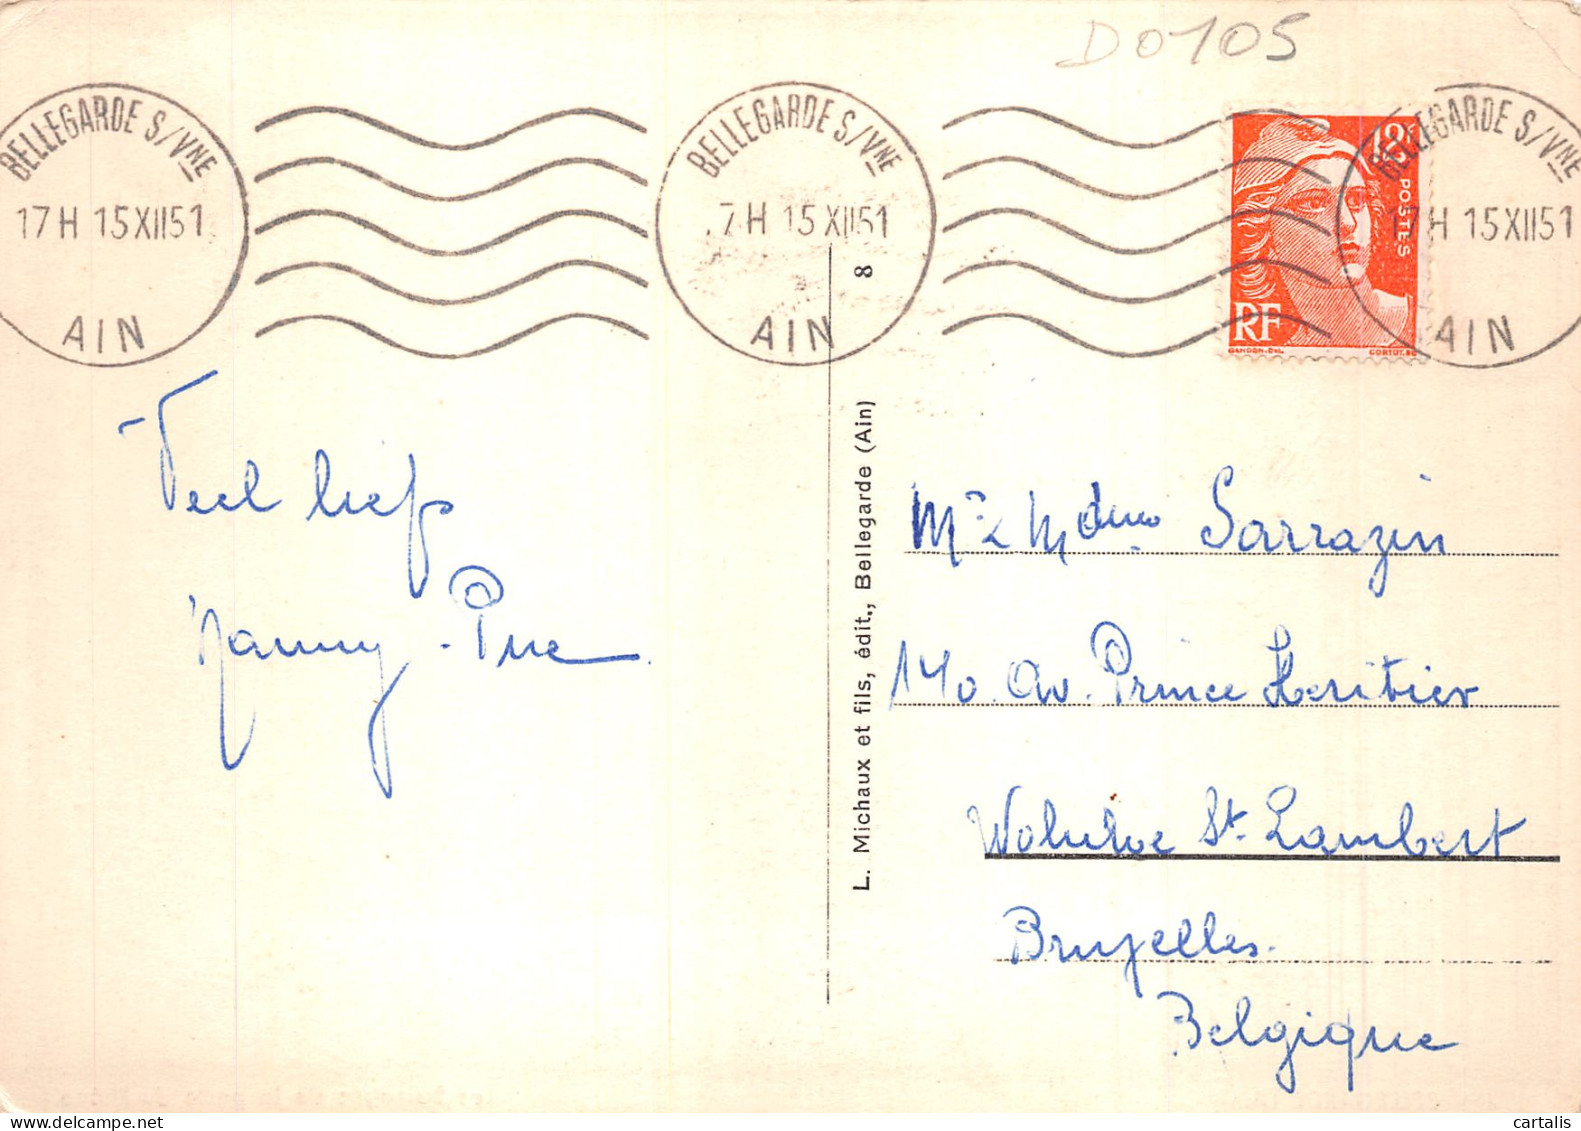 D0105
BELLEGARDE S/VNE
17H 15 XII 51
AIN
BELLEGARDE S/VNE
7H 15 XII 51
AIN
BELLEGARDE S/VNE
17H 15 XII 51
AIN
POSTES
RF
GANDON-DEL.
CORTOT.SC
8
L. Michaux et fils, édit., Bellegarde (Ain)
Veel liefs
Sarrazin
140. Av. Prince Heritier
Woluwe St. Lambert
Bruxelles.
Belgique
cartalis